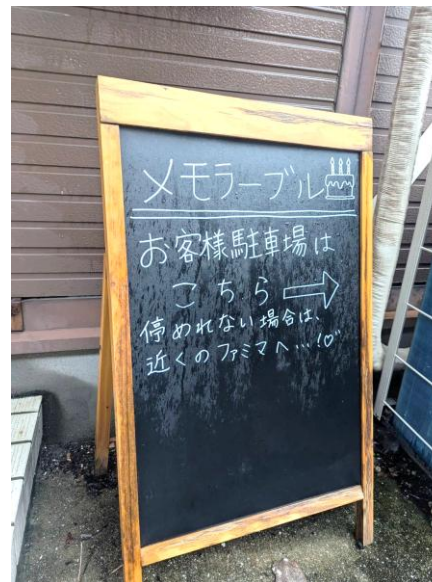 メモラーブル
お客様駐車場は
こちら⇨
停めれない場合は、
近くのファミマへ…!♡